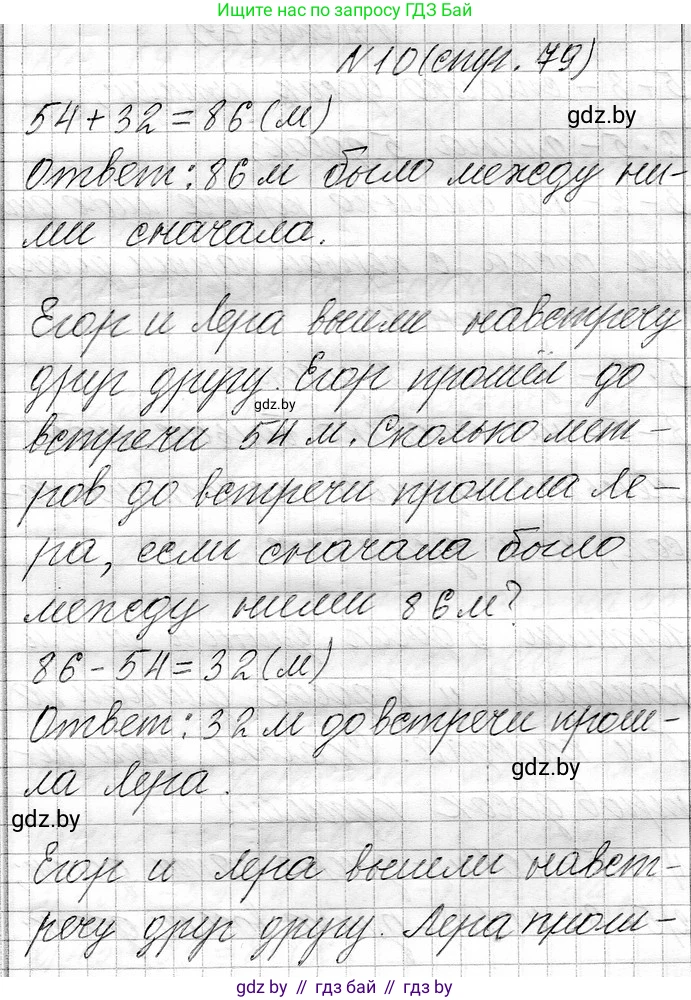 Ищите нас по запросу ГДЗ Бай
№10 (стр. 79)
54 + 32 = 86 (м)
gdz.by
Ответ: 86 м было между ни-
ми сначала.
Егор и Лера вышли навстречу
друг другу. Егор прошёл до
gdz.by
встречи 54 м. Сколько мет-
ров до встречи прошла Ле-
ра, если сначала было
между ними 86 м?
86 - 54 = 32 (м)
Ответ: 32 м до встречи прош-
ла Лера.
gdz.by
gdz.by
Егор и Лера вышли навст-
речу друг другу. Лера прош-
gdz.by // гдз бай // гдз by